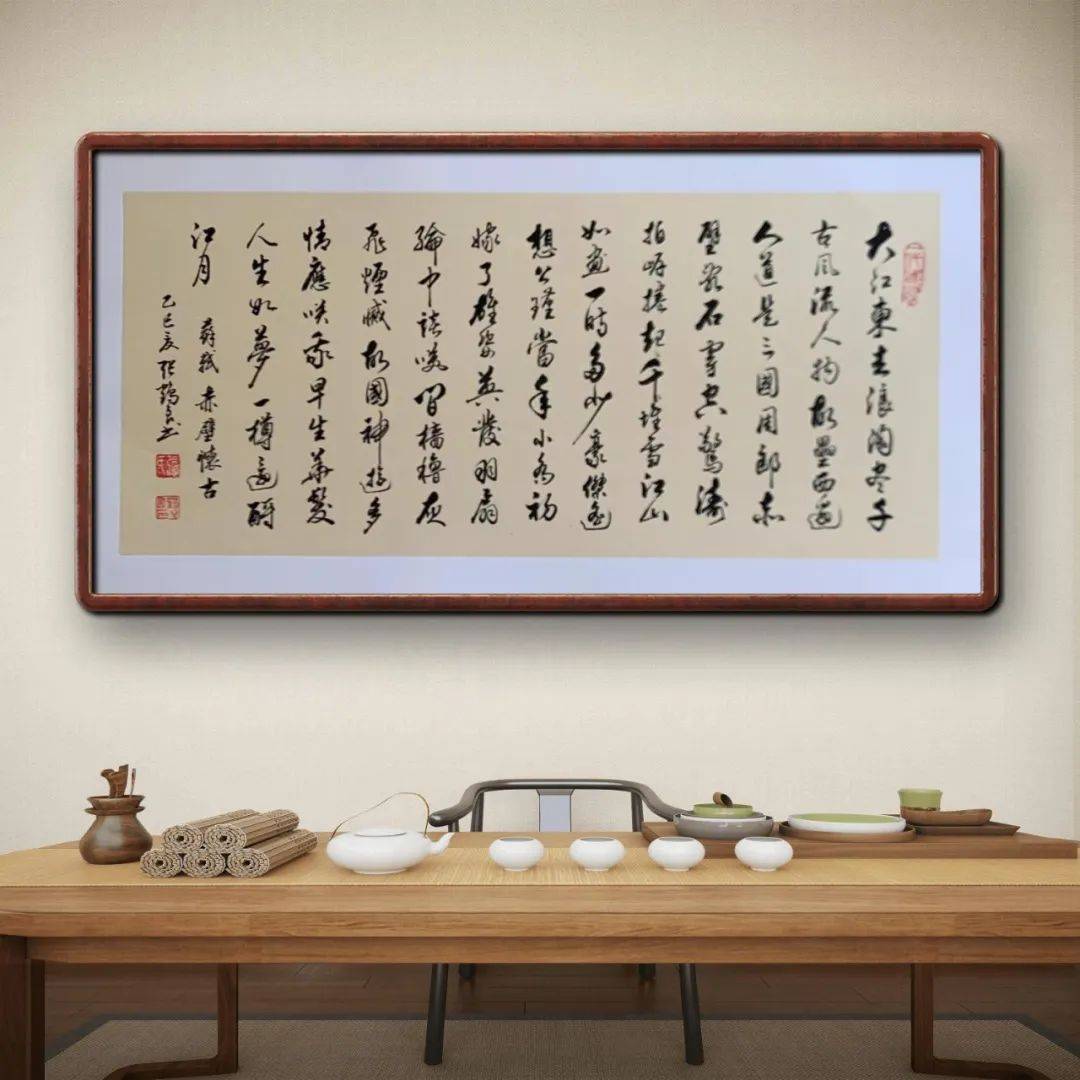 大江東去浪淘盡千
古風流人物故壘西邊
人道是三國周郎赤
壁亂石穿空驚濤
拍岸捲起千堆雪江山
如畫一時多少豪傑遙
想公瑾當年小喬初
嫁了雄姿英發羽扇
綸巾談咲間檣櫓灰
飛煙滅故國神遊多
情應咲我早生華髮
人生如夢一樽還酹
江月
蘇軾 赤壁懷古
乙巳夏 張鶴書